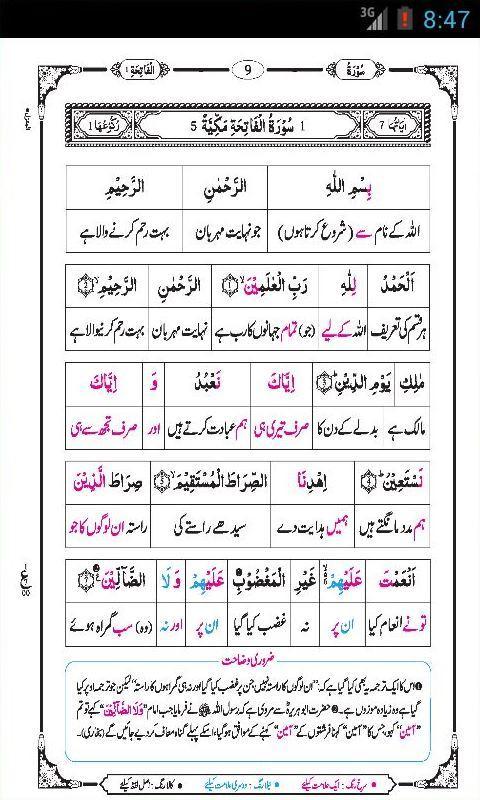 3G 8:47
سُوْرَةُ 9 اَلْفَاتِحَةِ ١
اٰیَاتُهَا 7 1 سُوْرَةُ الْفَاتِحَةِ مَكِّیَّةٌ 5 رُكُوْعُهَا 1
بِسْمِ اللّٰهِ الرَّحْمٰنِ الرَّحِیْمِ
اللہ کے نام سے (شروع کرتا ہوں) جو نہایت مہربان بہت رحم کرنے والا ہے
اَلْحَمْدُ لِلّٰهِ رَبِّ الْعٰلَمِیْنَۙ﴿1﴾ الرَّحْمٰنِ الرَّحِیْمِۙ﴿2﴾
ہر قسم کی تعریف اللہ کے لیے (جو) تمام جہانوں کا رب ہے نہایت مہربان بہت رحم کرنیوالا ہے
مٰلِكِ یَوْمِ الدِّیْنِؕ﴿3﴾ اِیَّاكَ نَعْبُدُ وَ اِیَّاكَ
مالک ہے بدلے کے دن کا صرف تیری ہی ہم عبادت کرتے ہیں اور صرف تجھ سے ہی
نَسْتَعِیْنُؕ﴿4﴾ اِهْدِنَا الصِّرَاطَ الْمُسْتَقِیْمَۙ﴿5﴾ صِرَاطَ الَّذِیْنَ
ہم مدد مانگتے ہیں ہمیں ہدایت دے سیدھے راستے کی راستہ ان لوگوں کا جو
اَنْعَمْتَ عَلَیْهِمْ۬ۙ غَیْرِ الْمَغْضُوْبِ عَلَیْهِمْ وَلَا الضَّآلِّیْنَ﴿7﴾
تو نے انعام کیا ان پر نہ غضب کیا گیا ان پر اور نہ (وہ) سب گمراہ ہوئے
ضروری وضاحت
❶ اس کا ایک ترجمہ یہ بھی کیا گیا ہے کہ: "ان لوگوں کا راستہ نہیں جن پر غضب کیا گیا اور نہ ہی گمراہوں کا راستہ" لیکن جو ترجمہ اوپر کیا
گیا ہے وہ زیادہ موزوں ہے۔ ❷ حضرت ابو ہریرہؓ سے مروی ہے کہ رسول اللہ ﷺ نے فرمایا جب امام "وَلَا الضَّآلِّیْنَ" کہے تو تم
"آمین" کہو، جس کا "آمین" کہنا فرشتوں کے "آمین" کہنے کے موافق ہو گیا، اسکے پہلے گناہ معاف کر دیے جائیں گے (بخاری)۔
• سرخ رنگ: ایک علامت کیلئے • نیلا رنگ: دوسری علامت کیلئے • کالا رنگ: اصل لفظ کیلئے